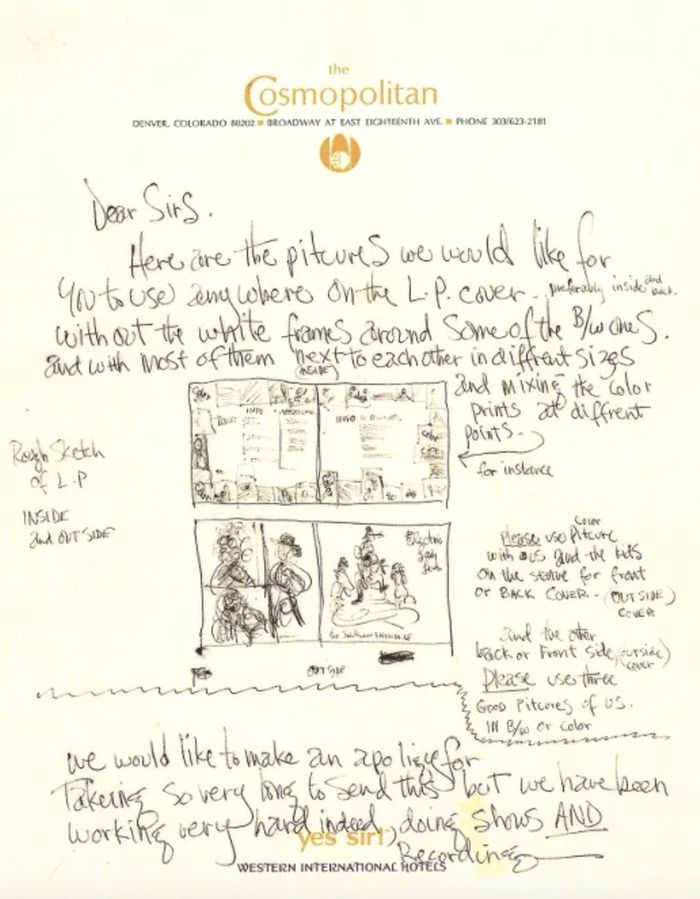 the
Cosmopolitan
DENVER, COLORADO 80202 ■ BROADWAY AT EAST EIGHTEENTH AVE. ■ PHONE 303/623-2181
Dear Sirs.
Here are the pitcures we would like for
You to use anywhere on the L.P. cover - preferably inside and back.
with out the white frames around some of the B/W ones.
and with most of them next to each other in diffrent sizes
(INSIDE)
and mixing the color
prints at diffrent
points -
for instance
Rough Sketch
of L.P
INSIDE
and OUTSIDE
Color
INFO
Color
Electric
Lady
Color
Please use Pitcure
with us and the kids
on the statue for front
or BACK COVER - (OUTSIDE)
COVER
and the other
back or Front side (outside)
cover
Please use three
Good Pitcures of us.
IN B/W or color
OUTSIDE
we would like to make an apoligie for
Takeing so very long to send this but we have been
working very hard indeed, doing shows AND
Recording
yes sir!
WESTERN INTERNATIONAL HOTELS